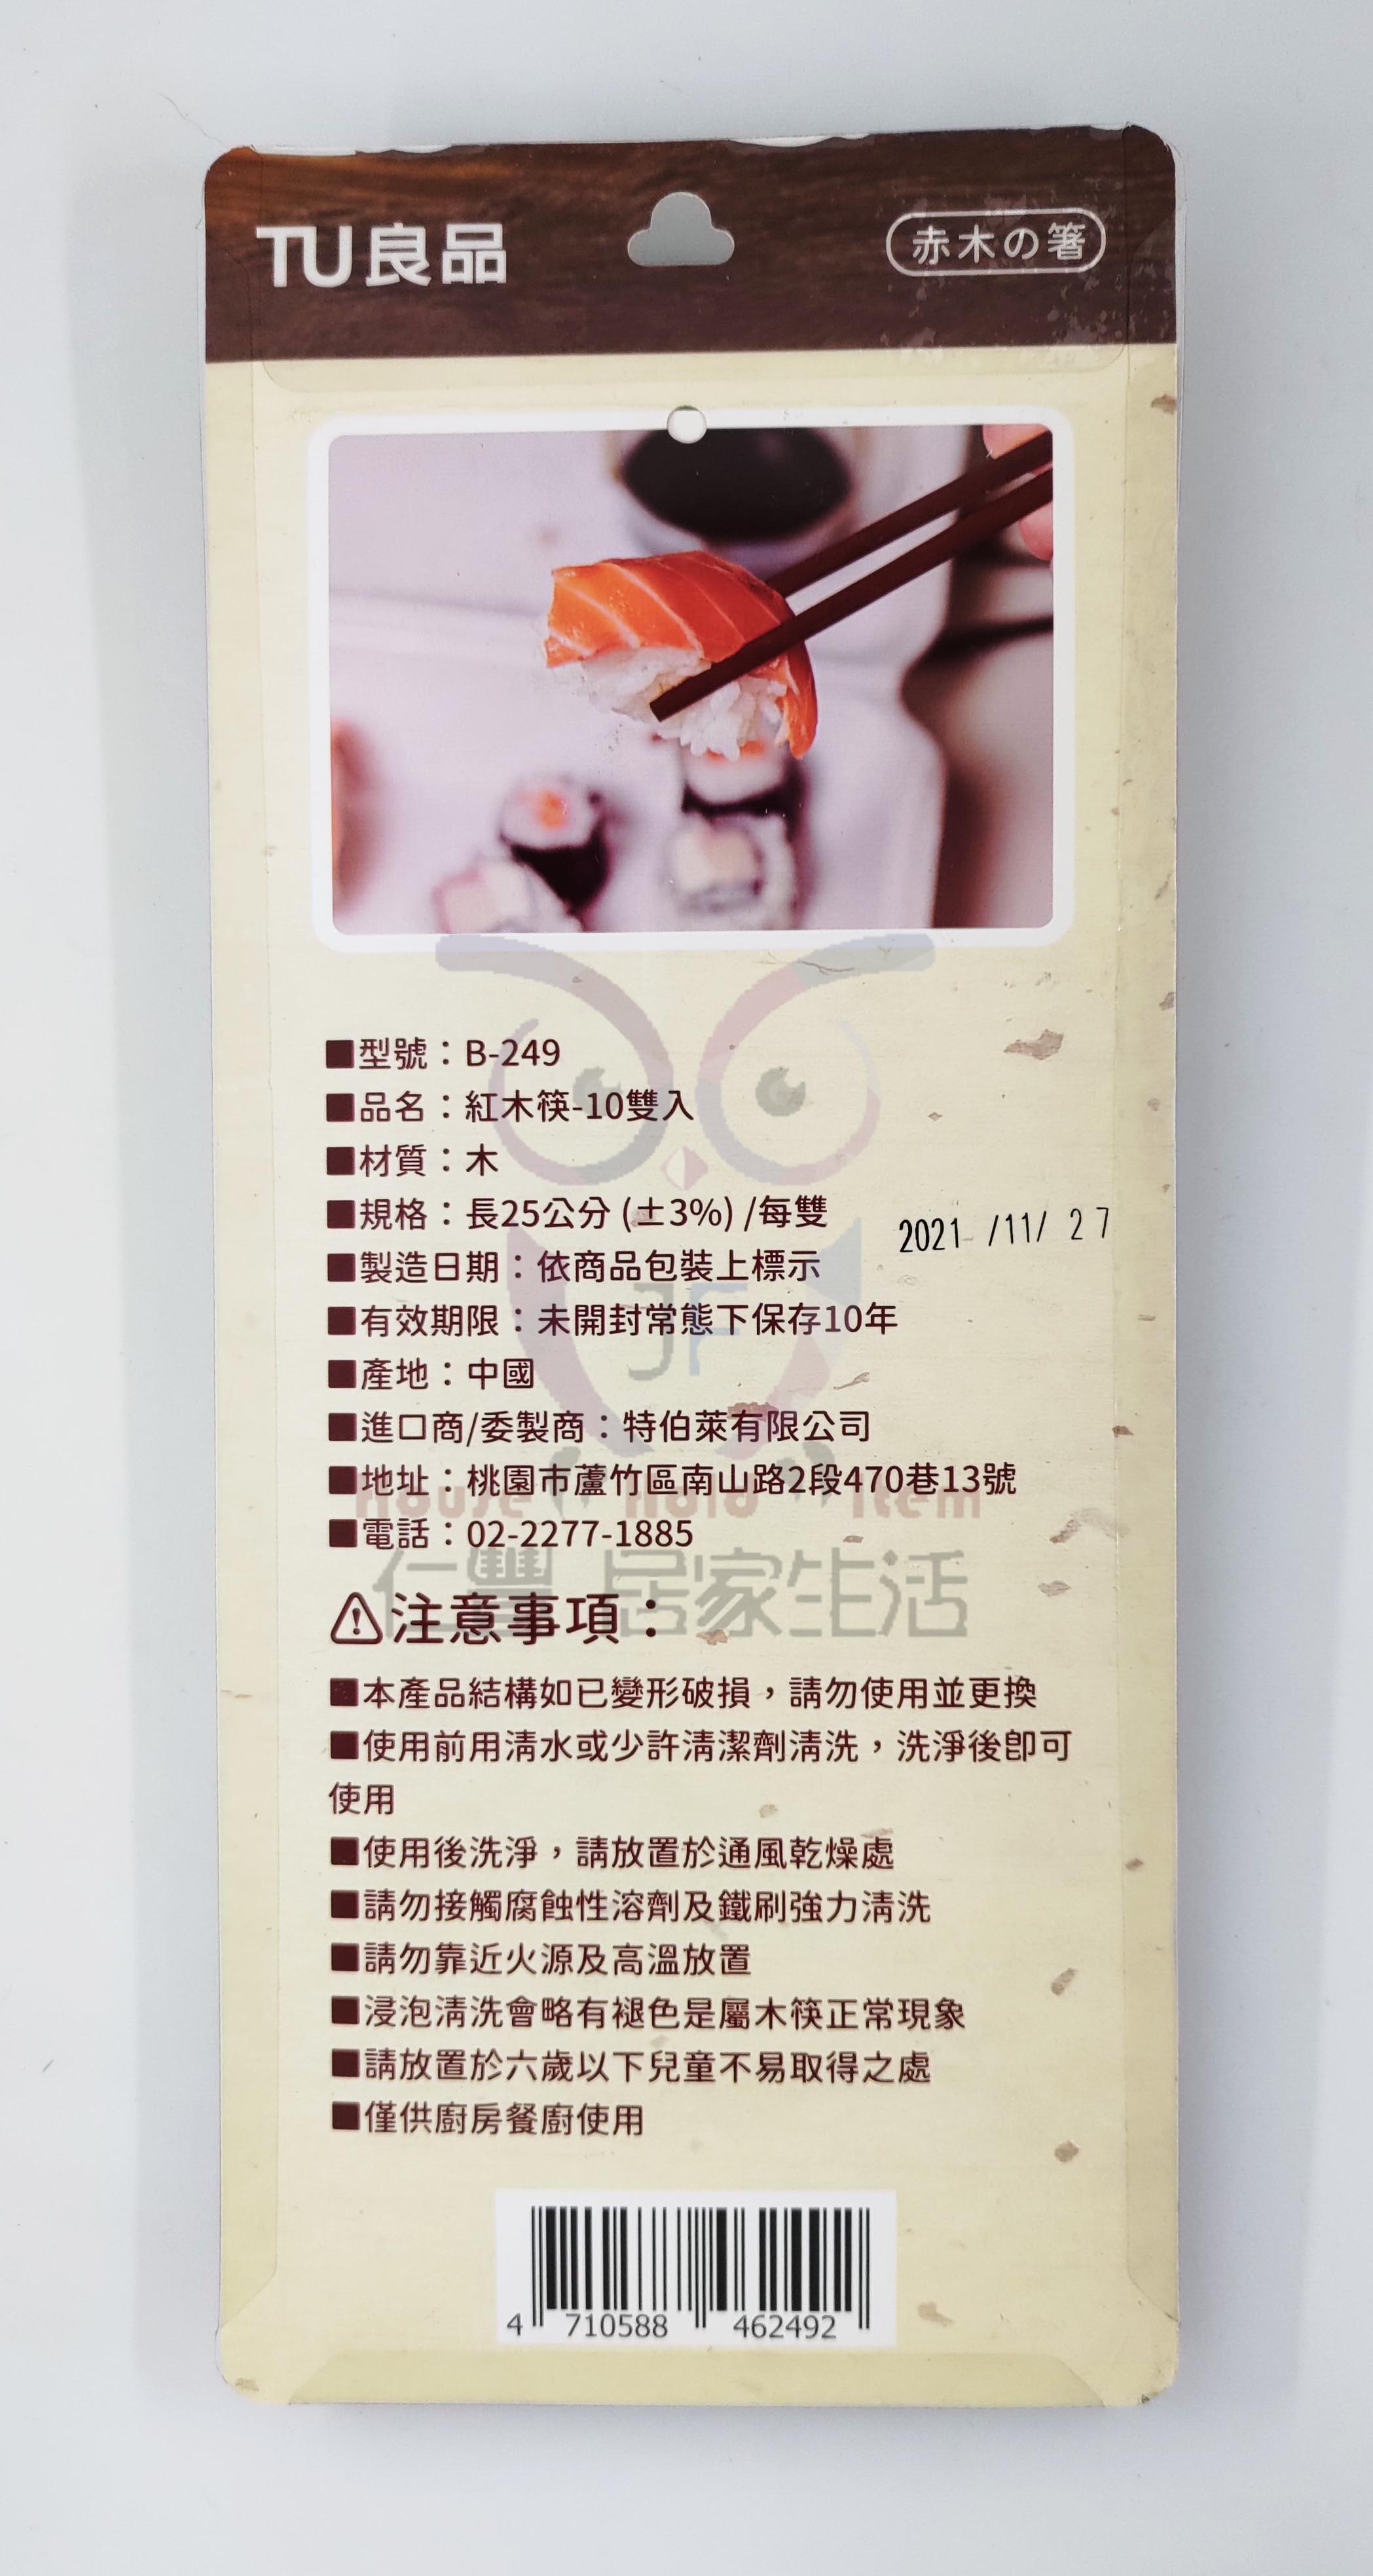 TU良品
赤木の箸
■型號：B-249
■品名：紅木筷-10雙入
■材質：木
■規格：長25公分 (±3%) /每雙
2021 /11/ 27
■製造日期：依商品包裝上標示
■有效期限：未開封常態下保存10年
JF
■產地：中國
■進口商/委製商：特伯萊有限公司
■地址：桃園市蘆竹區南山路2段470巷13號
House Hold Item
■電話：02-2277-1885
仁豐 居家生活
⚠注意事項：
■本產品結構如已變形破損，請勿使用並更換
■使用前用清水或少許清潔劑清洗，洗淨後即可
使用
■使用後洗淨，請放置於通風乾燥處
■請勿接觸腐蝕性溶劑及鐵刷強力清洗
■請勿靠近火源及高溫放置
■浸泡清洗會略有褪色是屬木筷正常現象
■請放置於六歲以下兒童不易取得之處
■僅供廚房餐廚使用
4 710588 462492